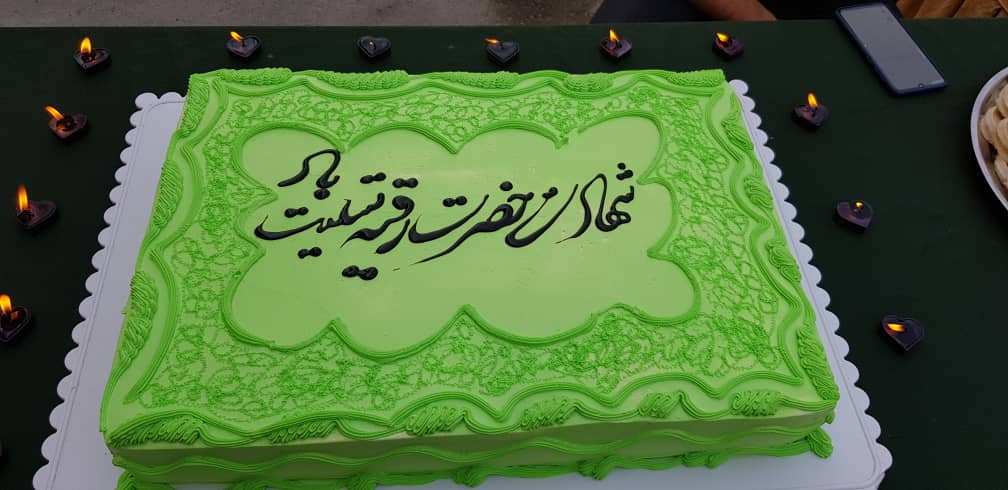 شهادت حضرت رقیه تسلیت باد